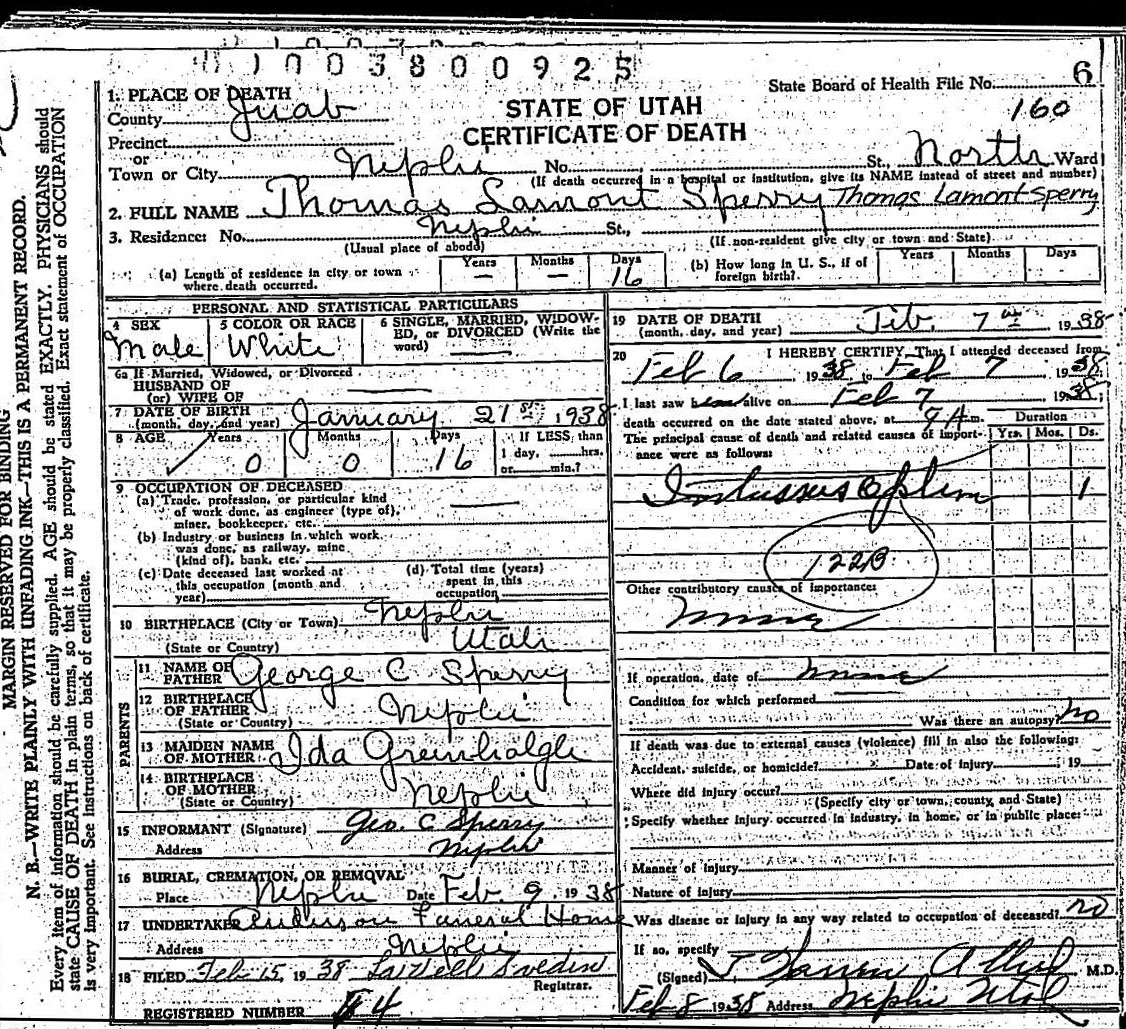 1 0 0 3 8 0 0 9 2 5
State Board of Health File No. 6
160
1. PLACE OF DEATH
County Juab
STATE OF UTAH
CERTIFICATE OF DEATH
Precinct
or
Town or City Nephi No. St., North Ward
(If death occurred in a hospital or institution, give its NAME instead of street and number)
2. FULL NAME Thomas Lamont Sperry Thomas Lamont Sperry
3. Residence: No. Nephi St.,
(Usual place of abode) (If non-resident give city or town and State)
(a) Length of residence in city or town where death occurred. Years — Months — Days 16
(b) How long in U. S., if of foreign birth? Years Months Days
PERSONAL AND STATISTICAL PARTICULARS
4 SEX Male
5 COLOR OR RACE White
6 SINGLE, MARRIED, WIDOWED, or DIVORCED (Write the word)
6a If Married, Widowed, or Divorced
HUSBAND OF
(or) WIFE OF
7 DATE OF BIRTH (month, day, and year) January 21st 1938
8 AGE Years 0 Months 0 Days 16 If LESS than 1 day, hrs. or min.?
9 OCCUPATION OF DECEASED
(a) Trade, profession, or particular kind
of work done, as engineer (type of),
miner, bookkeeper, etc.
(b) Industry or business in which work
was done, as railway, mine
(kind of), bank, etc.
(c) Date deceased last worked at
this occupation (month and
year)
(d) Total time (years)
spent in this
occupation
10 BIRTHPLACE (City or Town) Nephi
(State or Country) Utah
PARENTS
11 NAME OF FATHER George C Sperry
12 BIRTHPLACE OF FATHER Nephi
(State or Country)
13 MAIDEN NAME OF MOTHER Ida Greenhalgh
14 BIRTHPLACE OF MOTHER Nephi
(State or Country)
15 INFORMANT (Signature) Geo. C Sperry
Address Nephi
16 BURIAL, CREMATION, OR REMOVAL
Place Nephi Date Feb. 9 1938
17 UNDERTAKER Anderson Funeral Home
Address Nephi
18 FILED Feb 15 1938
Registrar.
REGISTERED NUMBER 4
19 DATE OF DEATH
(month, day, and year) Feb. 7 1938
20 I HEREBY CERTIFY, That I attended deceased from
Feb 6, 1938 to Feb 7 1938;
I last saw him alive on Feb 7 1938;
death occurred on the date stated above, at 9 A m.
The principal cause of death and related causes of importance were as follows:
Duration
Yrs. Mos. Ds.
Intussusception 1
122B
Other contributory causes of importance:
none
If operation, date of none
Condition for which performed
Was there an autopsy? no
If death was due to external causes (violence) fill in also the following:
Accident, suicide, or homicide? Date of injury 19
Where did injury occur?
(Specify city or town, county, and State)
Specify whether injury occurred in industry, in home, or in public place:
Manner of injury
Nature of injury
Was disease or injury in any way related to occupation of deceased? no
If so, specify
(Signed) M.D.
Feb 8 1938 Address Nephi Utah
MARGIN RESERVED FOR BINDING
N. B.—WRITE PLAINLY WITH UNFADING INK—THIS IS A PERMANENT RECORD.
Every item of information should be carefully supplied. AGE should be stated EXACTLY. PHYSICIANS should
state CAUSE OF DEATH in plain terms, so that it may be properly classified. Exact statement of OCCUPATION
is very important. See instructions on back of certificate.